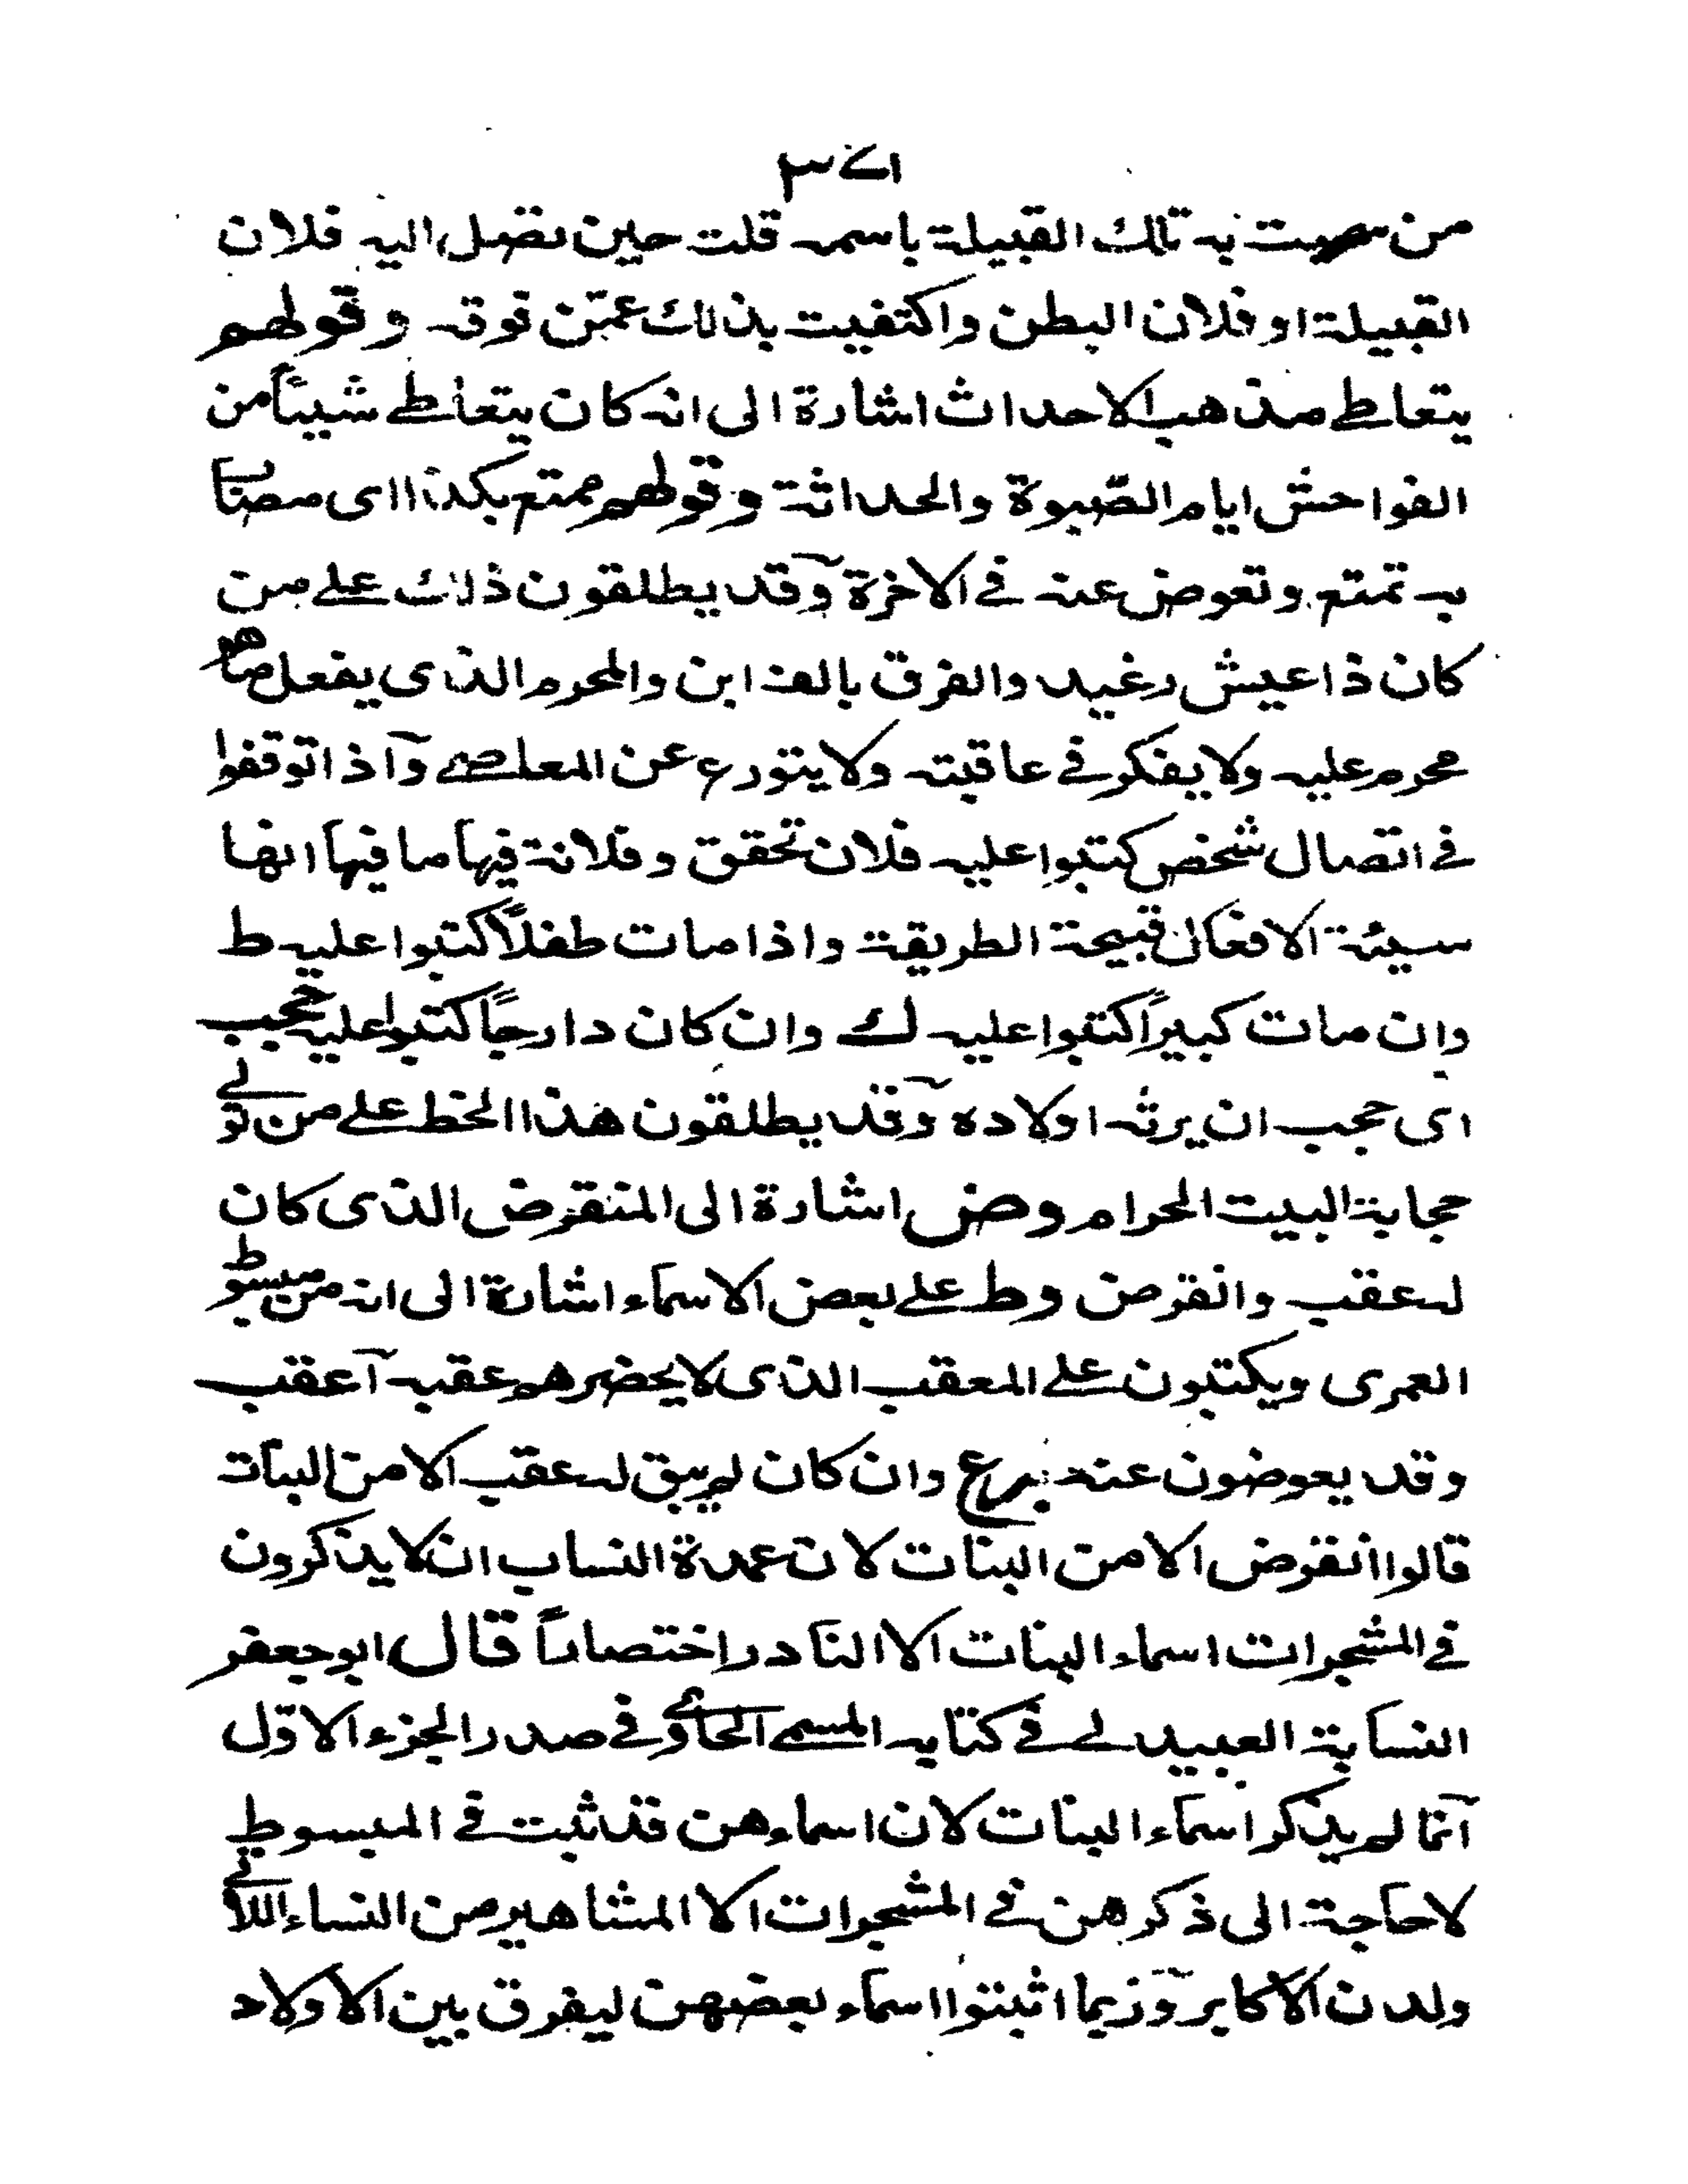 من سميت به تلك القبيلة باسمه قلت حين تصل اليه فلان
القبيلة او فلان البطن واكتفيت بذلك عمّن فوقه وقولهم
يتعاطے مذهب الاحداث اشارة الى انه كان يتعاطے شيئاً من
الفواحش ايام الصّبوة والحداثة وقولهم ممتع بكذا اى مصاب
به تمتع وتعوض عنه فے الاخرة وقد يطلقون ذلك علے من
كان ذا عيش رغيد والفرق بالف ابن والمحرم الذى يفعل ما هو
محرم عليه ولا يفكر فے عاقبته ولا يتورع عن المعاصے وآذا توقفوا
فے اتصال شخص كتبوا عليه فلان تحقق وفلانة فيها ما فيها انها
سيئة الافعال قبيحة الطريقة واذا مات طفلاً كتبوا عليه ط
وان مات كبيراً كتبوا عليه ك وان كان دارجاً كتبوا عليه حجب
اى حجب ان يرثه اولاده وقد يطلقون هذا الخط علے من تولے
حجابة البيت الحرام وض اشارة الى المنقرض الذى كان
له عقب وانقرض وط علے بعض الاسماء اشارة الى انه من مبسوط
العمرى ويكتبون علے المعقب الذى لا يحضرهم عقبه آعقب
وقد يعوضون عنه برع وان كان لم يبق له عقب الا من البنات
قالوا انقرض الا من البنات لان عمدة النساب ان لا يذكرون
فے المشجرات اسماء البنات الا النادر اختصاراً قال ابو جعفر
النسابة العبيدلے فے كتابه المسمے الحاوے فے صدر الجزء الاوّل
آنما لم يذكر اسماء البنات لان اسماءهن قد ثبت فے المبسوط
لا حاجة الى ذكرهن فے المشجرات الا المشاهير من النساء اللاتے
ولدن الاكابر وربما اثبتوا اسماء بعضهن ليفرق بين الاولاد